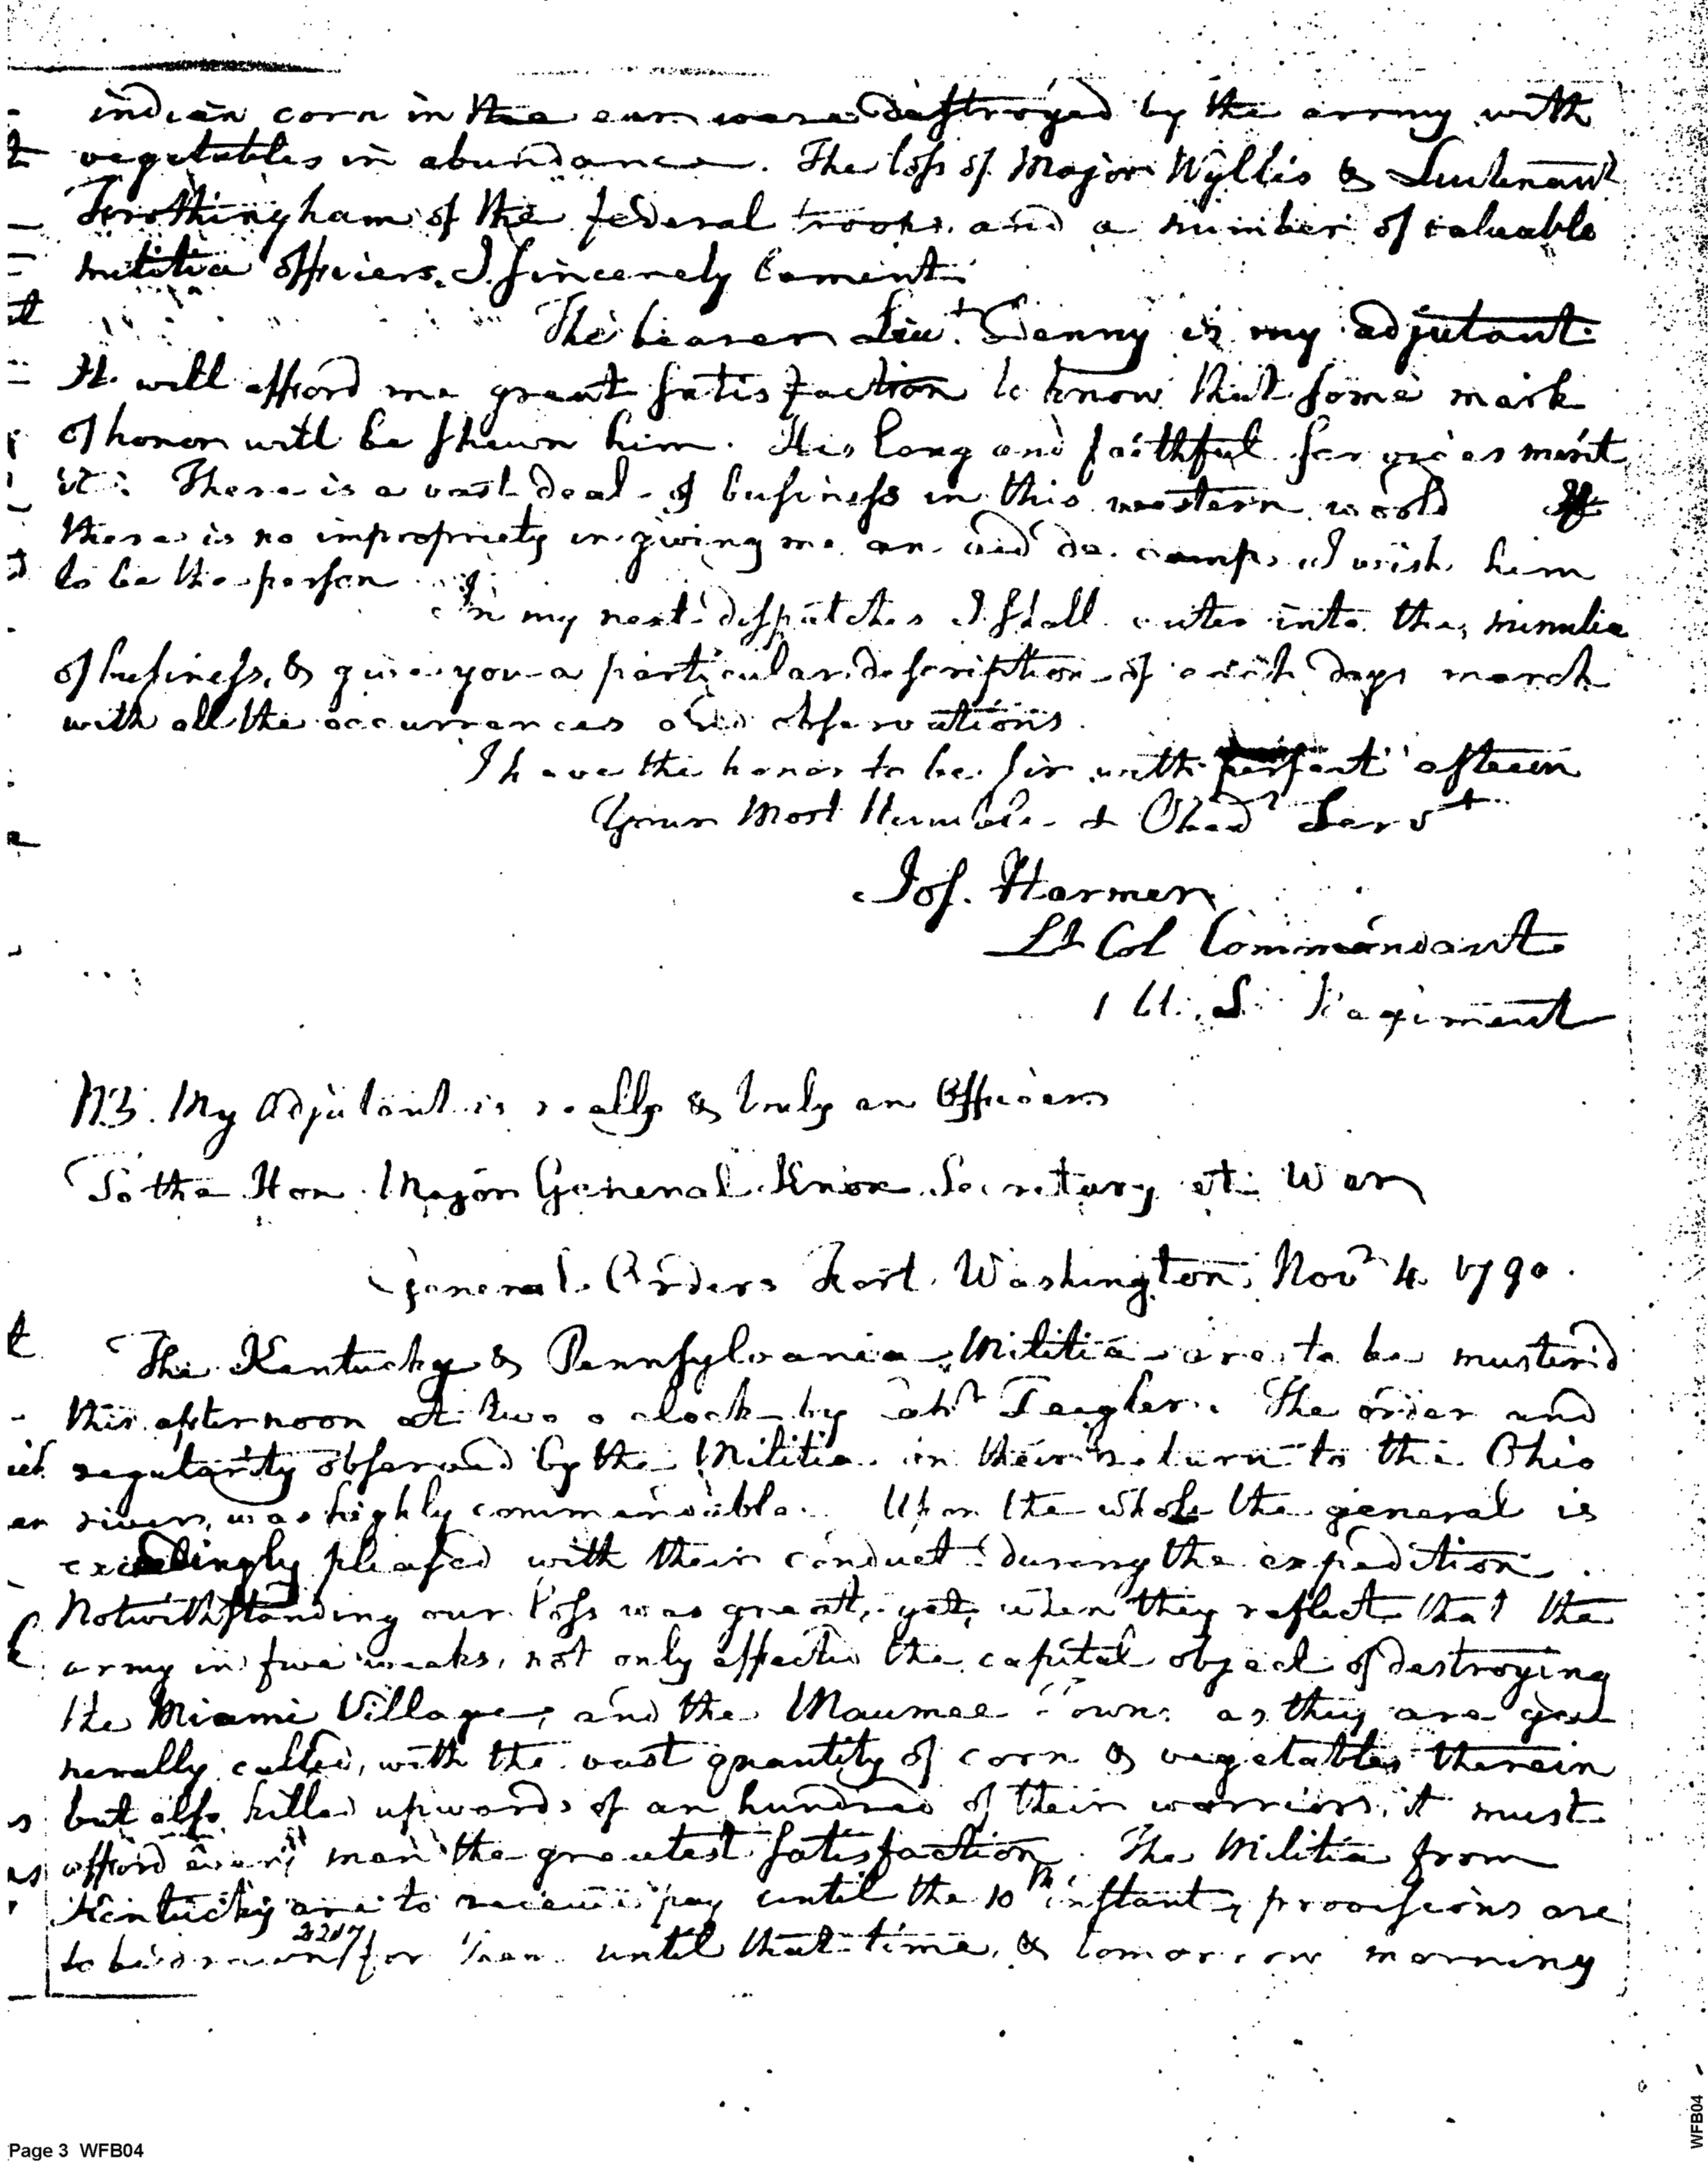 indian corn in the ear were destroyed by the army with
vegetables in abundance. The loss of Major Wyllis & Lieutenant
Frothingham of the federal troops and a number of valuable
militia officers. I sincerely lament.
The bearer Lieut. Denny is my adjutant
It will afford me great satisfaction to know that some mark
of honor will be shewn him. His long and faithful services merit
it. There is a vast deal of business in this western world If
there is no impropriety in giving me an aid de camp, I wish him
to be the person
In my next dispatches I shall enter into the minutia
of business, & give you a particular description of each days march
with all the occurrences and observations.
I have the honor to be sir with perfect esteem
Your Most Humble & Obed. Servt
Jos. Harmer
Lt Col Commandant
1 U. S. Regiment
N.B. My Adjutant is really & truly an Officer
To the Hon. Major General Knox Secretary at War
General Orders Fort Washington, Novr 4 1790.
The Kentucky & Pennsylvania Militia are to be musterd
this afternoon at two o clock by Zeigler. The order and
regularity observed by the Militia in their return to the Ohio
river, was highly commendable. Upon the whole the general is
exceedingly pleased with their conduct during the expedition.
Notwithstanding our loss was great, yet, when they reflect that the
army in five weeks, not only effected the capital object of destroying
the Miami Village, and the Maumee Towns as they are gen
nerally called, with the vast quantity of corn & vegetables therein
but also killed upwards of an hundred of their warriors, it must
afford every man the greatest satisfaction. The Militia from
Kentucky are to receive pay until the 10th instant, provisions are
2217
to be drawn for them until that time, & tomorrow morning
Page 3 WFB04
WFB04